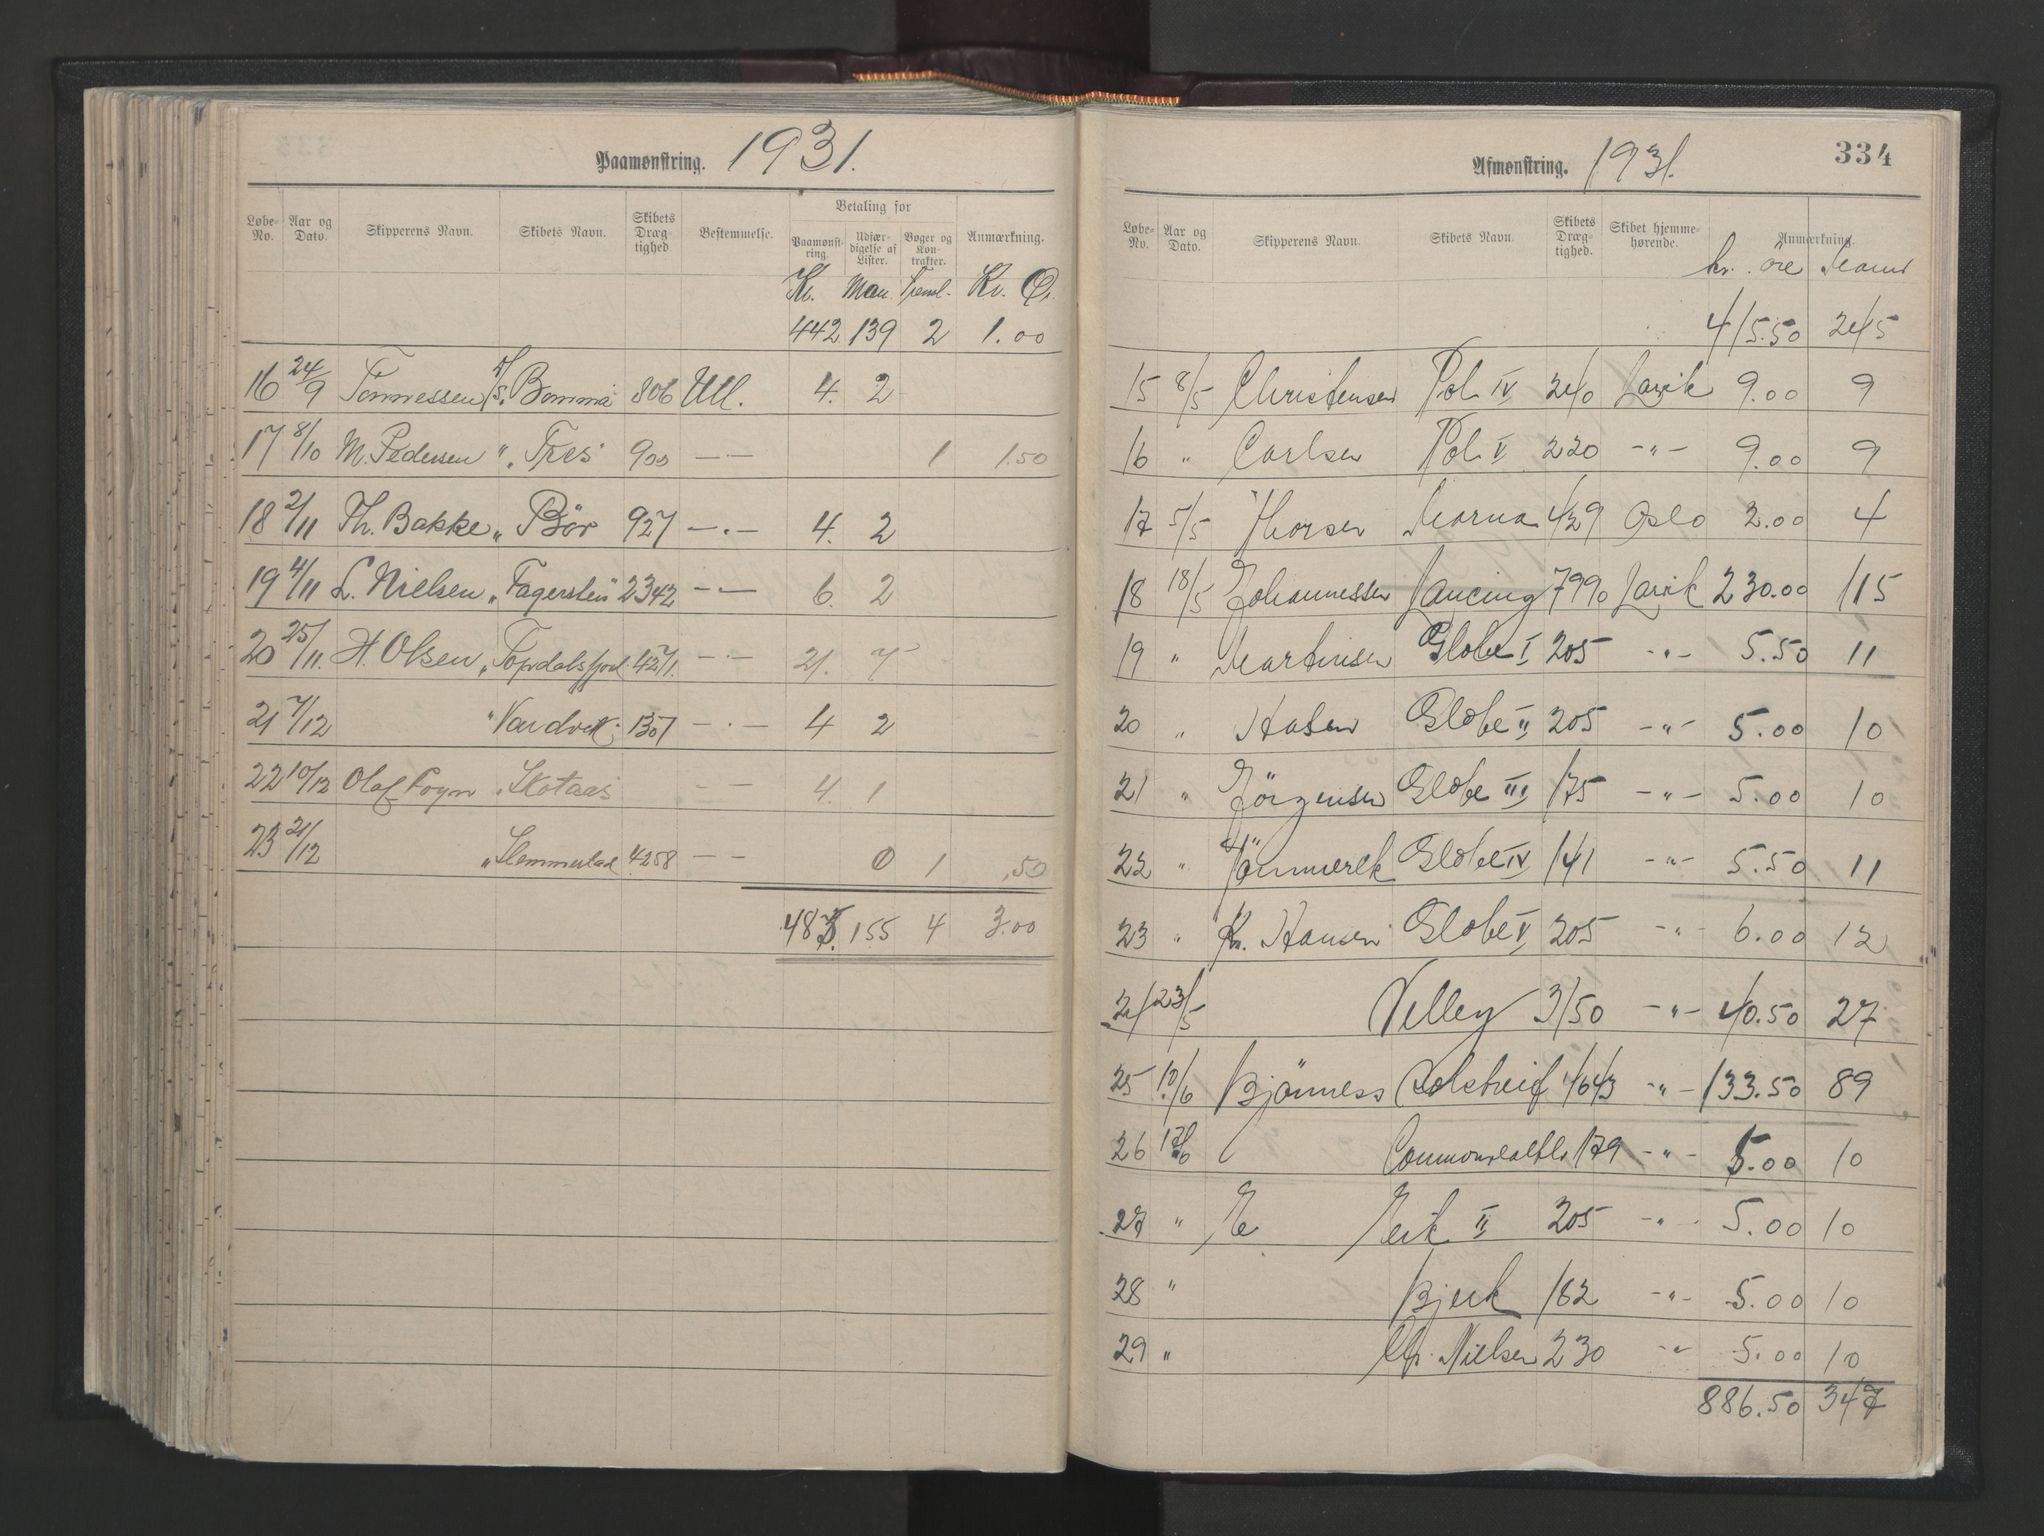 Paamønstring. 1931.
Løbe-No. Aar og Dato. Skipperens Navn. Skibets Navn. Skibets Dræg-tighed Bestemmelse. Betaling for Paamønst-ring. Udfær-digelse af Lister. Bøger og Kon-trakter. Anmærkning.
Kr. Man. Kr. Ø.
442 139 2 1.00
16 24/9 Tønnessen D/S. Bomma 806 Utl. 4. 2
17 8/10 M. Pedersen " Tres 900 —"— 1 1.50
18 2/11 Th. Bakke " Bör 927 —"— 4. 2
19 4/11 L. Nielsen " Fagersten 2342 —"— 6. 2
20 25/11 H. Olsen " Topdalsfjord 4271. —"— 21. 7
21 7/12 " Vardvik 1307 —"— 4 2
22 10/12 Olaf Fogn " Skotaas —"— 4. 1
23 21/12 " Slemmestad 4258 —"— 0 1 ,50
155 4 3.00
Afmønstring. 1931. 334
Løbe-No. Aar og Dato. Skipperens Navn. Skibets Navn. Skibets Dræg-tighed. Skibet hjemme-hørende. Anmærkning.
kr. öre Mann
415.50 245
15 8/5 Christensen Pol IV 240 Larvik 9.00 9
16 " Carlsen Pol V 220 —"— 9.00 9
17 5/5 Thorsen Marna 429 Oslo 2.00 4
18 18/5 Johannessen Lancing 7990 Larvik 230.00 115
19 " Martinsen Globe I 205 —"— 5.50 11
20 " Globe II 205 —"— 5.00 10
21 " Jörgensen Globe III 175 —"— 5.00 10
22 " Globe IV 141 —"— 5.50 11
23 " Kr. Hansen Globe V 205 —"— 6.00 12
24 23/5 Velley 3150 —"— 40.50 27
25 10/6 Bjönness Solstreif 4643 —"— 133.50 89
26 Commonwealth 179 —"— 5.00 10
27 " E Erik II 205 —"— 5.00 10
28 " Bjerk 182 —"— 5.00 10
29 " Chr. Nielsen 230 —"— 5.00 10
886.50 347